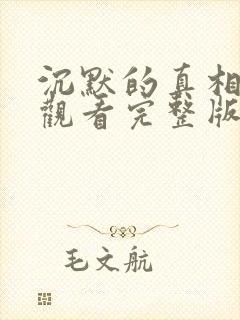 沉默的真相
觀看完整版
毛文航